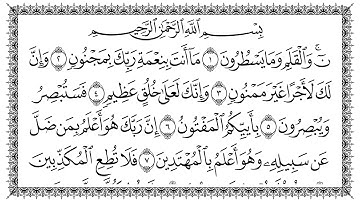 بِسْمِ اللَّهِ الرَّحْمَٰنِ الرَّحِيمِ
نٓ ۚ وَالْقَلَمِ وَمَا يَسْطُرُونَ ١ مَا أَنتَ بِنِعْمَةِ رَبِّكَ بِمَجْنُونٍ ٢ وَإِنَّ
لَكَ لَأَجْرًا غَيْرَ مَمْنُونٍ ٣ وَإِنَّكَ لَعَلَىٰ خُلُقٍ عَظِيمٍ ٤ فَسَتُبْصِرُ
وَيُبْصِرُونَ ٥ بِأَييِّكُمُ الْمَفْتُونُ ٦ إِنَّ رَبَّكَ هُوَ أَعْلَمُ بِمَن ضَلَّ
عَن سَبِيلِهِ وَهُوَ أَعْلَمُ بِالْمُهْتَدِينَ ٧ فَلَا تُطِعِ الْمُكَذِّبِينَ